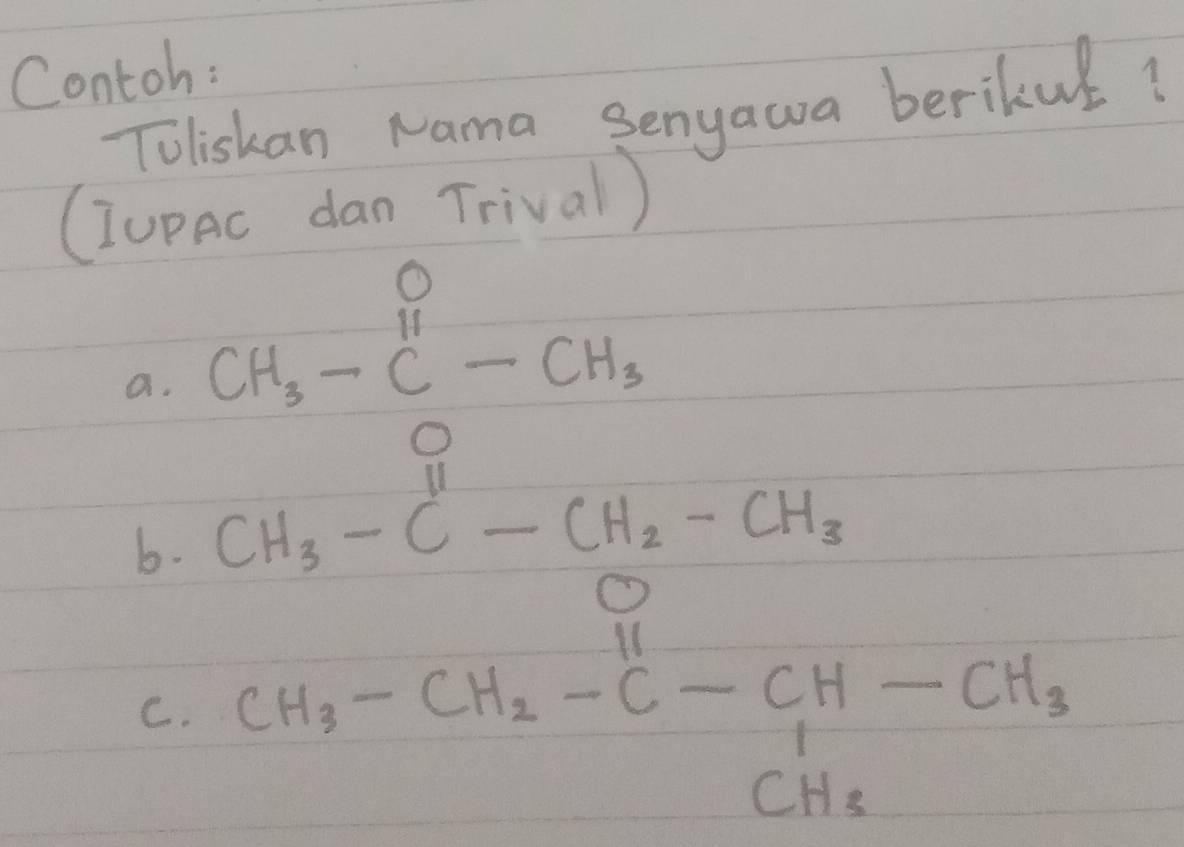 Contoh:
Tuliskan Nama Senyawa berikut !
(IUPAC dan Trival)
O
||
a. CH₃ - C - CH₃
O
||
b. CH₃ - C - CH₂ - CH₃
O
||
c. CH₃ - CH₂ - C - CH - CH₃
|
CH₃